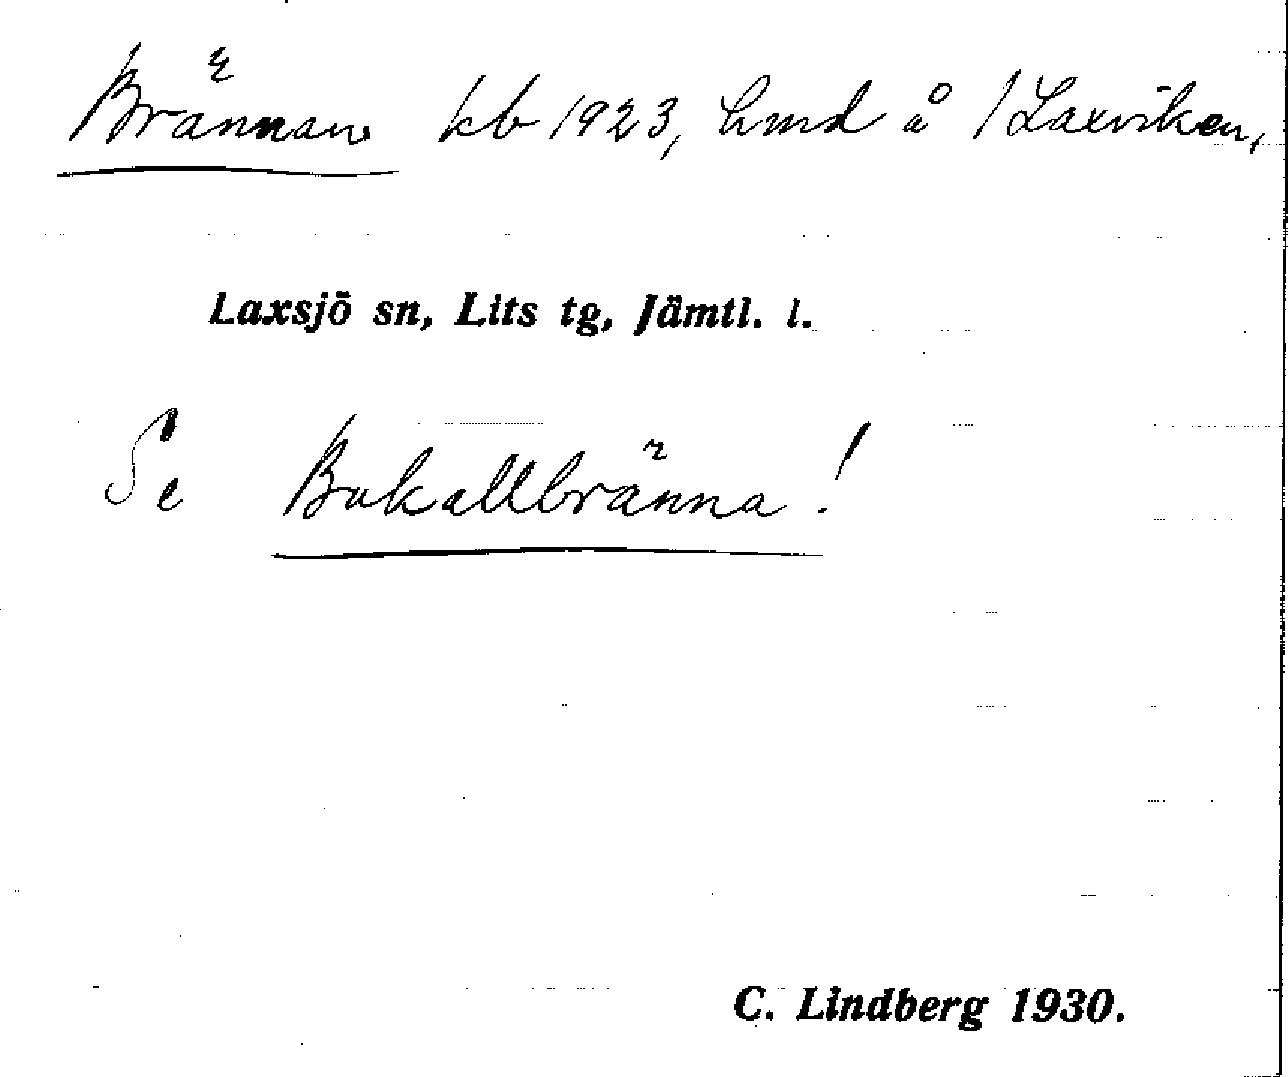 Brännan kb 1923, hmd å 1 Laxviken,
Laxsjö sn, Lits tg, Jämtl. l.
Se Bakallbränna!
C. Lindberg 1930.